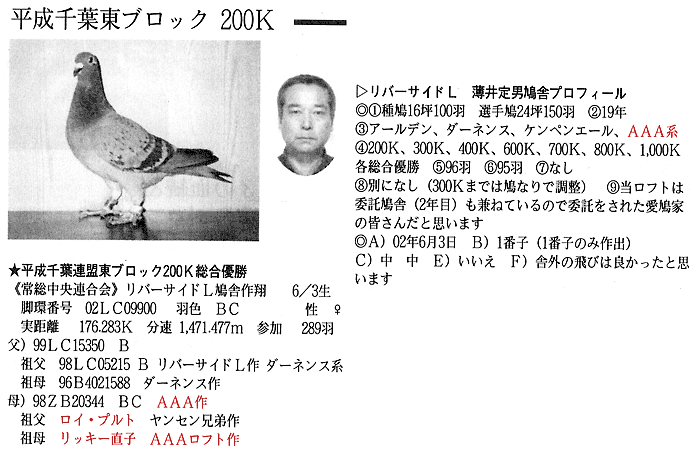 平成千葉東ブロック 200K
★平成千葉連盟東ブロック200K総合優勝
《常総中央連合会》リバーサイドL鳩舎作翔 6/3生
脚環番号 02LC09900 羽色 BC 性 ♀
実距離 176.283K 分速 1,471.477m 参加 289羽
父) 99LC15350 B
祖父 98LC05215 B リバーサイドL作 ダーネンス系
祖母 96B4021588 ダーネンス作
母) 98ZB20344 BC AAA作
祖父 ロイ・プルト ヤンセン兄弟作
祖母 リッキー直子 AAAロフト作
▷リバーサイドL 薄井定男鳩舎プロフィール
◎①種鳩16坪100羽 選手鳩24坪150羽 ②19年
③アールデン、ダーネンス、ケンペンエール、AAA系
④200K、300K、400K、600K、700K、800K、1,000K
各総合優勝 ⑤96羽 ⑥95羽 ⑦なし
⑧別になし(300Kまでは鳩なりで調整) ⑨当ロフトは
委託鳩舎(2年目)も兼ねているので委託をされた愛鳩家
の皆さんだと思います
◎A) 02年6月3日 B) 1番子(1番子のみ作出)
C) 中 中 E) いいえ F) 舎外の飛びは良かったと思
います